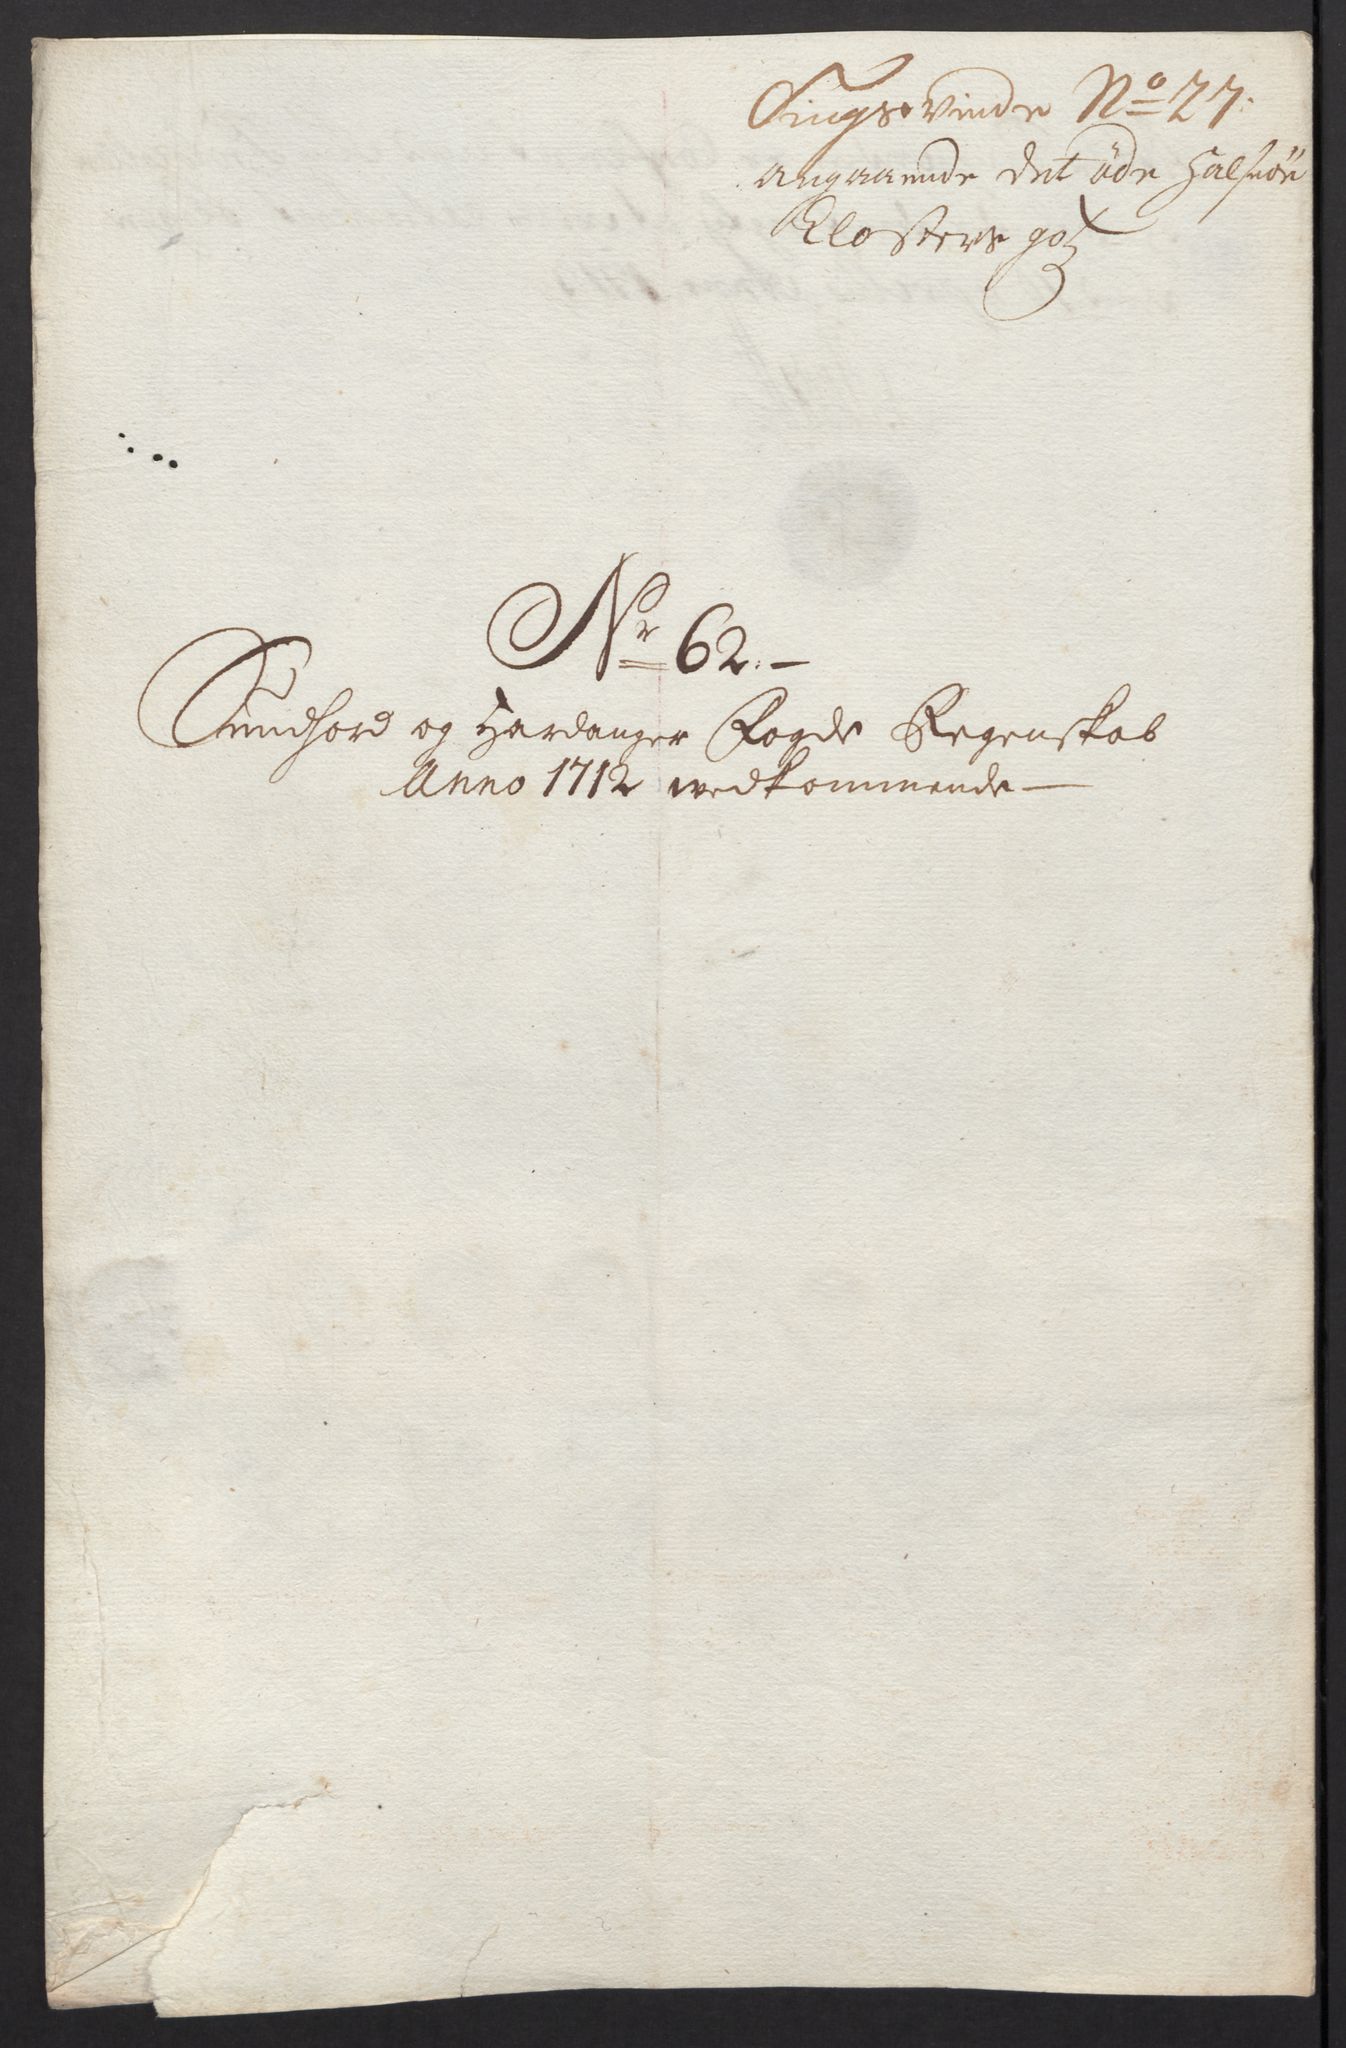 Tings Vinde No 27:
angaaende det øde Halsnøe
Closters gotz
Nr 62:-
Sundhord og Hardanger Fogde Regenskab
Anno 1712 wedkommende —